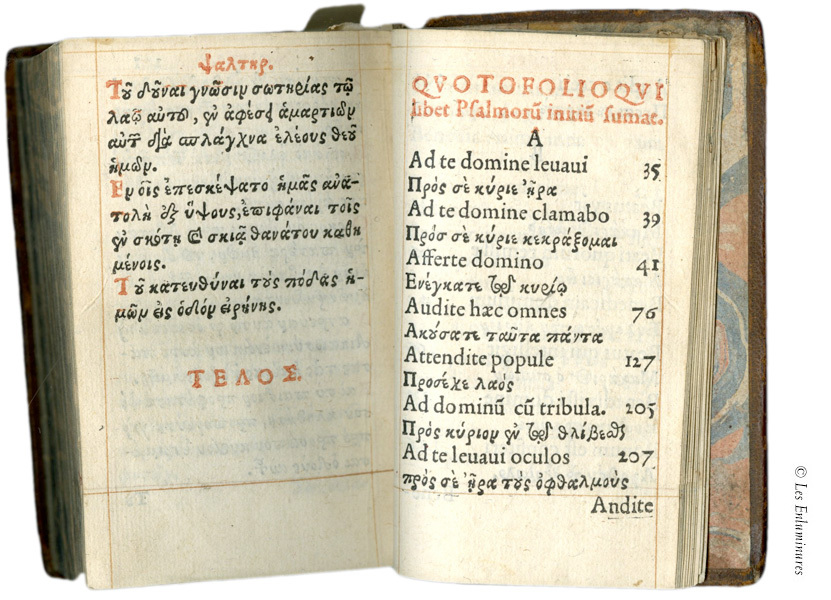 ψαλτηρ.
Τοῦ δοῦναι γνῶσιν σωτηρίας τῷ
λαῷ αὐτοῦ, ἐν ἀφέσει ἁμαρτιῶν
αὐτῶν διὰ σπλάγχνα ἐλέους θεοῦ
ἡμῶν.
Εν οἷς ἐπεσκέψατο ἡμᾶς ἀνα-
τολὴ ἐξ ὕψους, ἐπιφᾶναι τοῖς
ἐν σκότει καὶ σκιᾷ θανάτου καθη
μένοις.
Τοῦ κατευθῦναι τοὺς πόδας ἡ-
μῶν εἰς ὁδὸν εἰρήνης.
ΤΕΛΟΣ.
QVOTOFOLIOQVI
libet Psalmorũ initiũ sumat.
A
Ad te domine leuaui 35
Πρὸς σὲ κύριε ᾖρα
Ad te domine clamabo 39
Πρόσ σὲ κύριε κεκράξομαι
Afferte domino 41
Ενέγκατε τῷ κυρίῳ
Audite hæc omnes 76
Ακούσατε ταῦτα πάντα
Attendite popule 127
Προσέχε λαός
Ad dominũ cũ tribula. 205
Πρὸς κύριον ἐν τῷ θλίβεσθαι
Ad te leuaui oculos 207
πρὸς σὲ ᾖρα τοὺς ὀφθαλμοὺς
Andite
© Les Enluminures